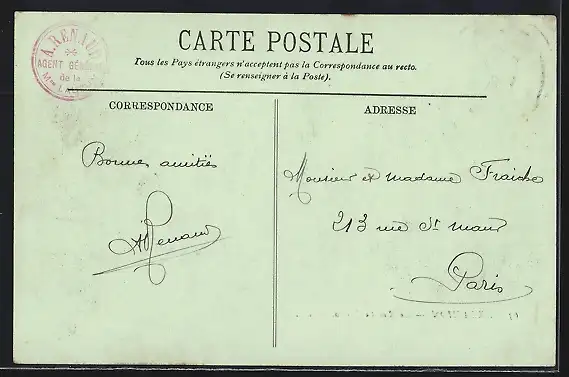 A. RENAUD
AGENT GÉNÉRAL
de la
Mon
CARTE POSTALE
Tous les Pays étrangers n'acceptent pas la Correspondance au recto.
(Se renseigner à la Poste).
CORRESPONDANCE
ADRESSE
Bonnes amitiés
ARenaud
Monsieur et madame Fraiche
213 rue St Maur
Paris